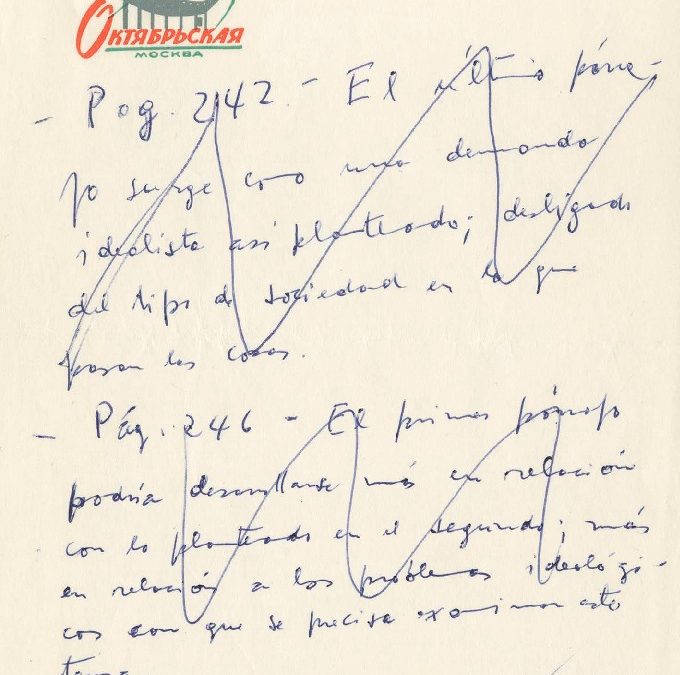 ОКТЯБРЬСКАЯ
МОСКВА
- Pag. 242. - El último párra-
fo surge como una demanda
idealista así planteada; desligada
del tipo de sociedad en la que
pasan las cosas.
- Pág. 246 - El primer párrafo
podría desarrollarse más en relación
con lo planteado en el segundo; más
en relación a los problemas ideológi-
cos con que se precisa examinar este
tema